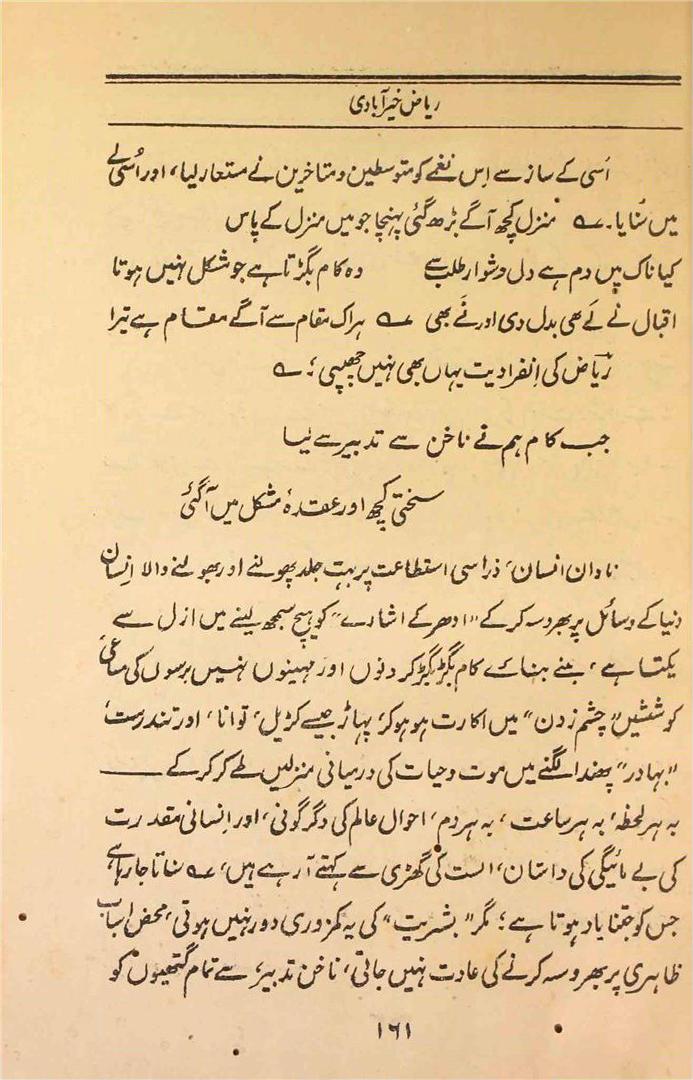 ریاض خیرآبادی
اُسی کے ساز سے اِس نغمے کو متوسطین و متاخرین نے مستعار لیا، اور اُسی لے
میں سُنایا۔ ؎ منزل کچھ آگے بڑھ گئی پہنچا جو میں منزل کے پاس
کیا ناک میں دم ہے دل دشوار طلب سے وہ کام بگڑتا ہے جو مشکل نہیں ہوتا
اقبال نے لَے بھی بدل دی اور نَے بھی ؎ ہر اک مقام سے آگے مقام ہے تیرا
ریاؔض کی اِنفرادیت یہاں بھی نہیں چھپی؛ ؎
جب کام ہم نے ناخن سے تدبیر سے لیا
سختی کچھ اور عقدۂ مشکل میں آگئی
نادان انسان، ذرا سی استطاعت پر بہت جلد پھولنے اور بھولنے والا اِنسان
دنیا کے وسائل پر بھروسہ کر کے "ادھر کے اشارے" کو ہیچ سمجھ لینے میں ازل سے
یکتا ہے، بنے بنائے کام بگڑ بگڑ کر دنوں اور مہینوں نہیں برسوں کی مساعی
کوششیں "چشم زدن" میں اکارت ہو ہو کر، پہاڑ جیسے کڑیل، توانا، اور تندرست،
"بہادر" پھندا لگنے میں موت و حیات کی درمیانی منزلیں طے کر کر کے ——
بہ ہر لحظہ، بہ ہر ساعت، بہ ہر دم، احوال عالم کی دگرگونی، اور اِنسانی مقدرت
کی بے مائیگی کی داستان، الست کی گھڑی سے کہتے آ رہے ہیں، ؎ سناتا جا رہا ہے
جس کو جتنا یاد ہوتا ہے؛ مگر "بشریت" کی یہ کمزوری دور نہیں ہوتی، محض اسباب
ظاہری پر بھروسہ کرنے کی عادت نہیں جاتی، ناخن تدبیر، سے تمام گتھیوں کو
۱۶۱